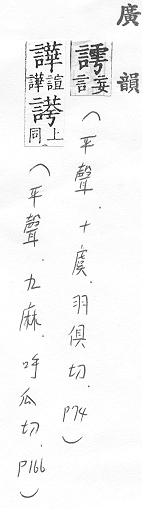 廣韻
謣妄言
（平聲．十虞．羽俱切．P74）
譁諠譁𧫢上同
（平聲．九麻．呼瓜切．P166）